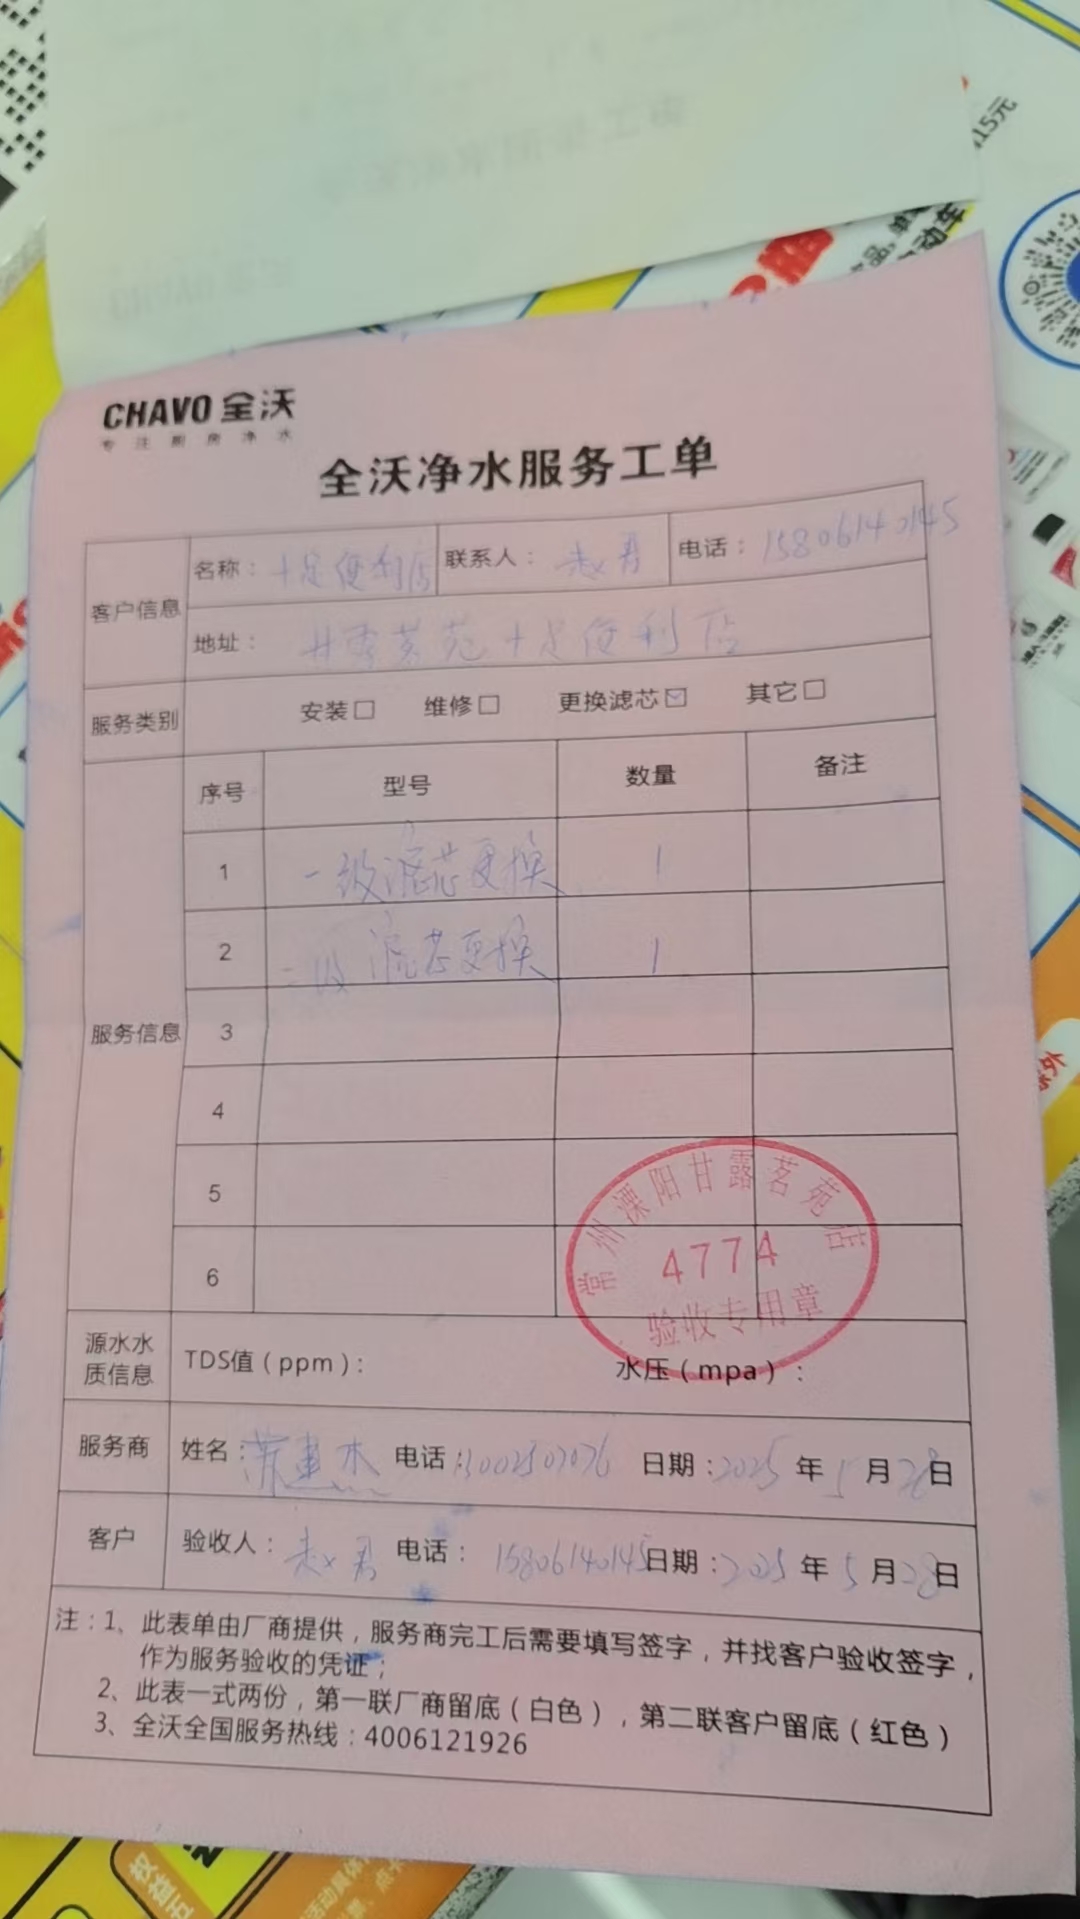 15元
CHAVO 全沃
专注厨房净水
全沃净水服务工单
客户信息
名称：十足便利店 联系人：赵君 电话：15806140145
地址：甘露茗苑十足便利店
服务类别 安装□ 维修□ 更换滤芯☑ 其它□
服务信息
序号 型号 数量 备注
1 一级滤芯更换 1
2 二级滤芯更换 1
3
4
5
6
常州溧阳甘露茗苑店
4774
验收专用章
源水水质信息 TDS值（ppm）： 水压（mpa）：
服务商 姓名： 电话： 日期：2025年5月28日
客户 验收人：赵君 电话：15806140145 日期：2025年5月28日
注：1、此表单由厂商提供，服务商完工后需要填写签字，并找客户验收签字，
作为服务验收的凭证；
2、此表一式两份，第一联厂商留底（白色），第二联客户留底（红色）
3、全沃全国服务热线：4006121926